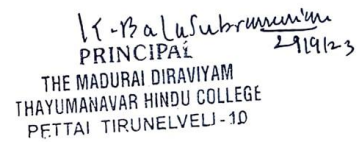 K. Balasubramanian
29/9/23
PRINCIPAL
THE MADURAI DIRAVIYAM
THAYUMANAVAR HINDU COLLEGE
PETTAI TIRUNELVELI - 10